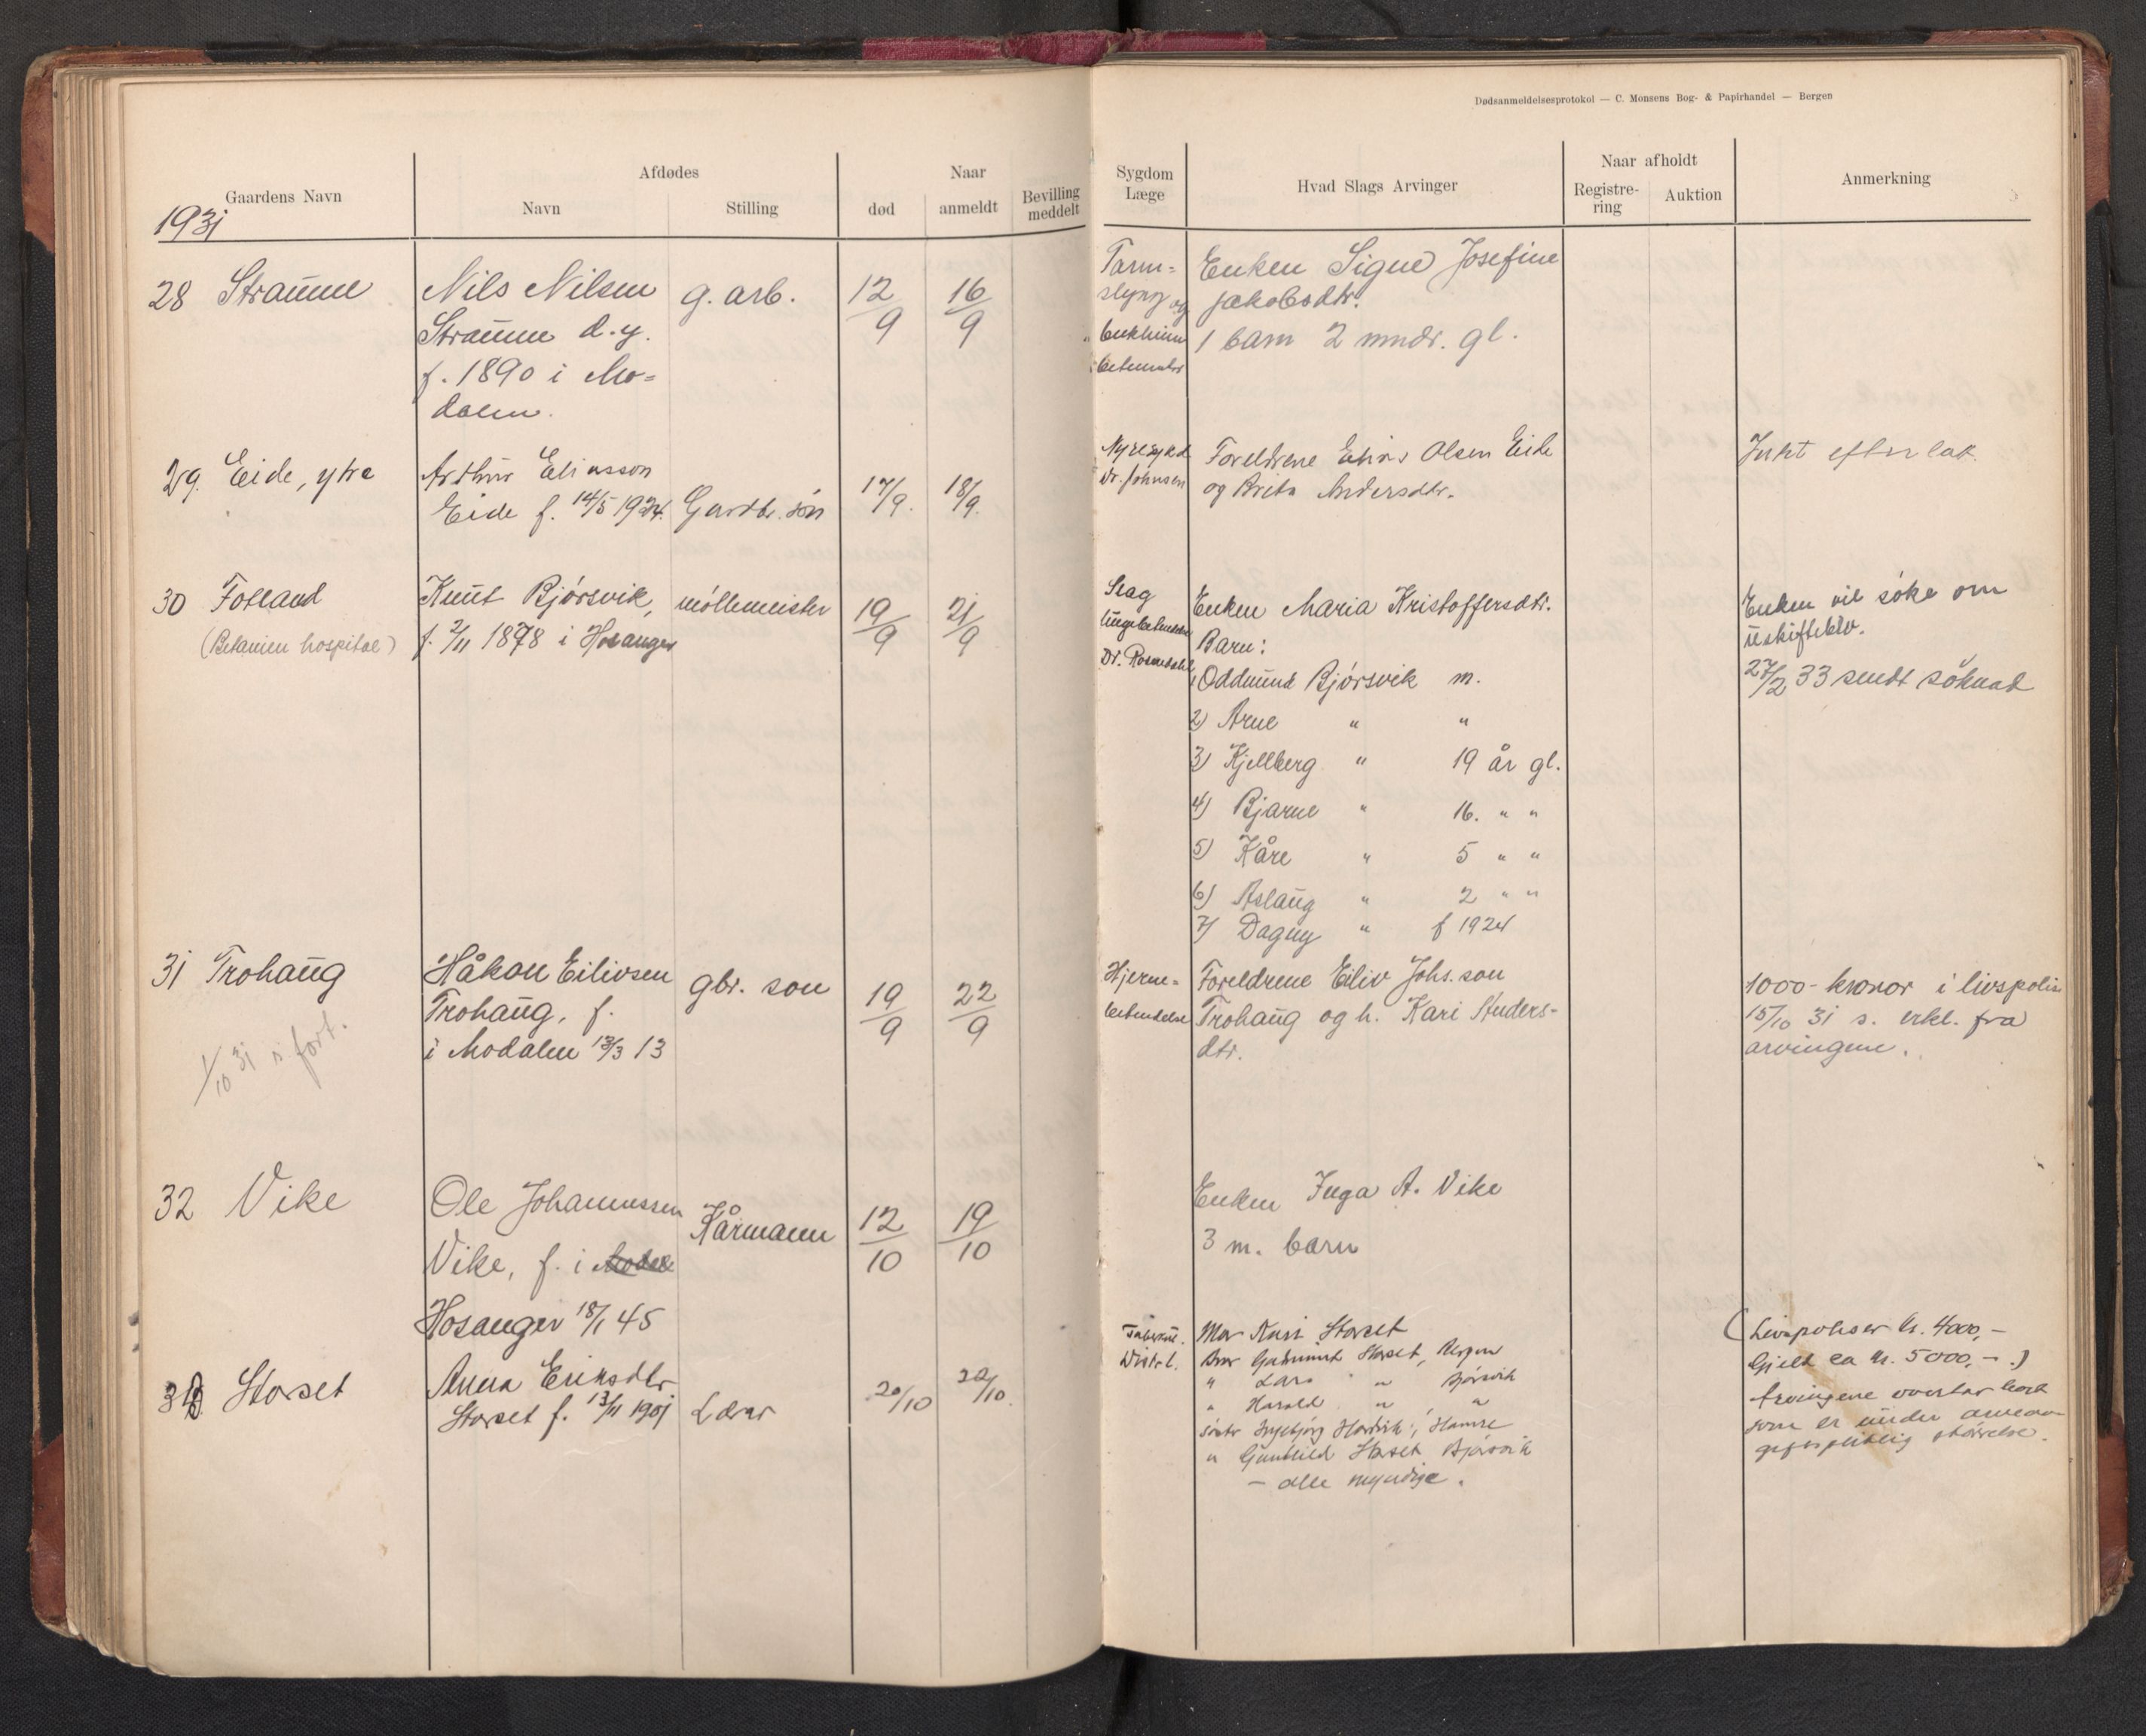 Dødsanmeldelsesprotokol — C. Monsens Bog- & Papirhandel — Bergen
Gaardens Navn
Afdødes
Navn
Stilling
Naar
død
anmeldt
Bevilling
meddelt
Sygdom
Læge
Hvad Slags Arvinger
Naar afholdt
Registre-
ring
Auktion
Anmerkning
1931
28 Straume
Nils Nilsen
Straume d.y.
f. 1890 i Mo=
dalen.
g. arb.
12/9
16/9
Tarm=
slyng og
Enken Signe Josefine
Jakobsdtr.
1 barn 2 mndr. gl.
29. Eide, ytre
Arthur Eliasson
Eide f. 14/5 1924.
Gardbr. søn
17/9.
18/9.
Nyresykd
Dr. Johnsen
Foreldrene Elias Olsen Eide
og Brita Andersdtr.
Intet efterlat.
30 Fotland
(Betanien hospital)
Knut Bjørsvik,
f. 2/11 1878 i Hosanger
møllemeister
19/9
21/9
Slag
lungebetendelse
Dr. Rosendahl
Enken Maria Kristoffersdtr.
Barn:
1 Oddmund Bjørsvik m.
2) Arne " "
3) Kjellberg " 19 år gl.
4) Bjarne " 16. " "
5) Kåre " 5 " "
6) Aslaug " 2 " "
7) Dagny " f 1924
Enken vil søke om
uskiftebv.
27/2 33 sendt søknad
31 Trohaug
1/10 31 s. fort.
Håkon Eilivsen
Trohaug, f.
i Modalen 13/3 13
gbr. son
19/9
22/9
Hjerne=
betendelse
Foreldrene Eiliv Johs. son
Trohaug og h. Kari Anders-
dtr.
1000- kronor i livspolise
15/10 31 s. erkl. fra
arvingene.
32 Vike
Ole Johannessen
Vike, f. i
Hosanger 18/1 45
Kårmann
12/10
19/10
Enken Inga A. Vike
3 m. barn
33 Storset
Anna Eriksdtr
Storset f. 13/11 1901
Lærer
20/10
22/10.
Tuberkul.
Distr.l.
Mor Kari Storset
Bror Gudmund Storset, Bergen
" Lars " Bjørsvik
" Harald " "
søster Ingebjørg Hordvik, Hamre
" Gunhild Storset Bjørsvik
— alle myndige.
(Livspoliser kr. 4000,-
Gjeld ca kr. 5000,- .)
Arvingene overtar boet
som er under arveav-
giftspliktig størrelse.